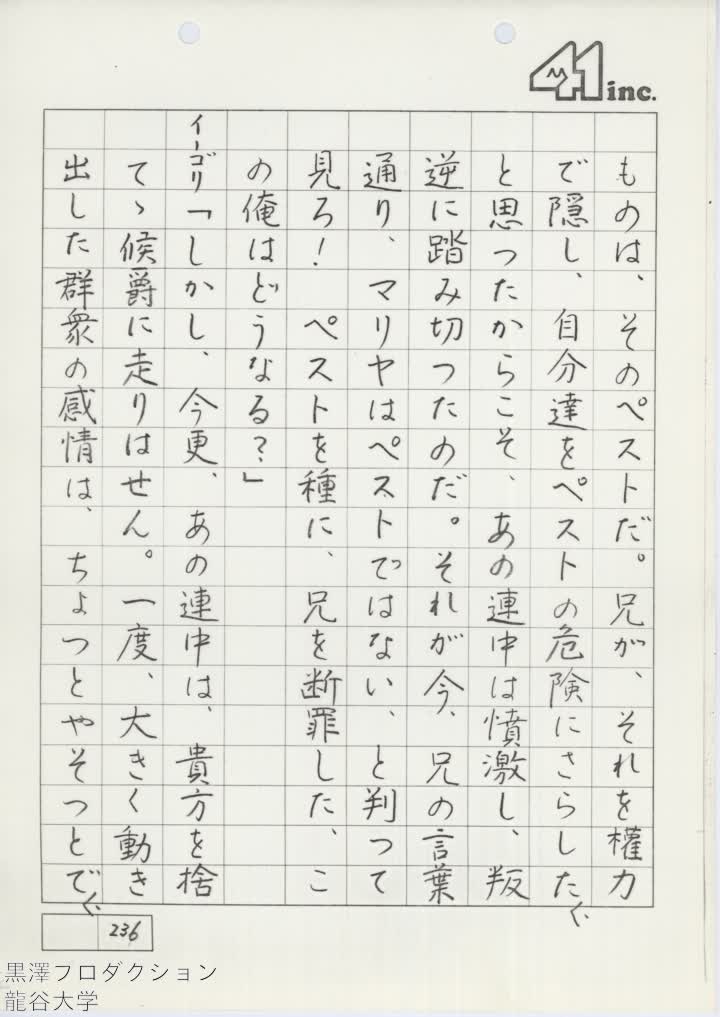 41 inc.
ものは、そのペストだ。兄が、それを權力
で隠し、自分達をペストの危険にさらした
と思つたからこそ、あの連中は憤激し、叛
逆に踏み切つたのだ。それが今、兄の言葉
通り、マリヤはペストではない、と判つて
見ろ！ペストを種に、兄を断罪した、こ
の俺はどうなる？」
イーゴリ「しかし、今更、あの連中は、貴方を捨
てゝ候爵に走りはせん。一度、大きく動き
出した群衆の感情は、ちょつとやそつとで
236
黒澤プロダクション
龍谷大学